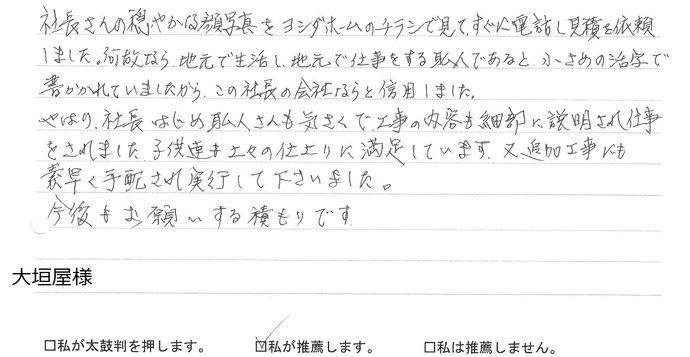 社長さんの穏やかな顔写真をヨシダホームのチラシで見て、すぐに電話し見積を依頼
しました。何故なら、地元で生活し、地元で仕事をする職人であると、小さめの活字で
書かれていましたから、この社長の会社ならと信用しました。
やはり、社長はじめ職人さんも気さくで、工事の内容も細部に説明され仕事
をされました。子供達も上々の仕上りに満足しています。又、追加工事にも
素早く手配され実行して下さいました。
今後もお願いする積もりです
大垣屋様
□私が太鼓判を押します。 ☑私が推薦します。 □私は推薦しません。